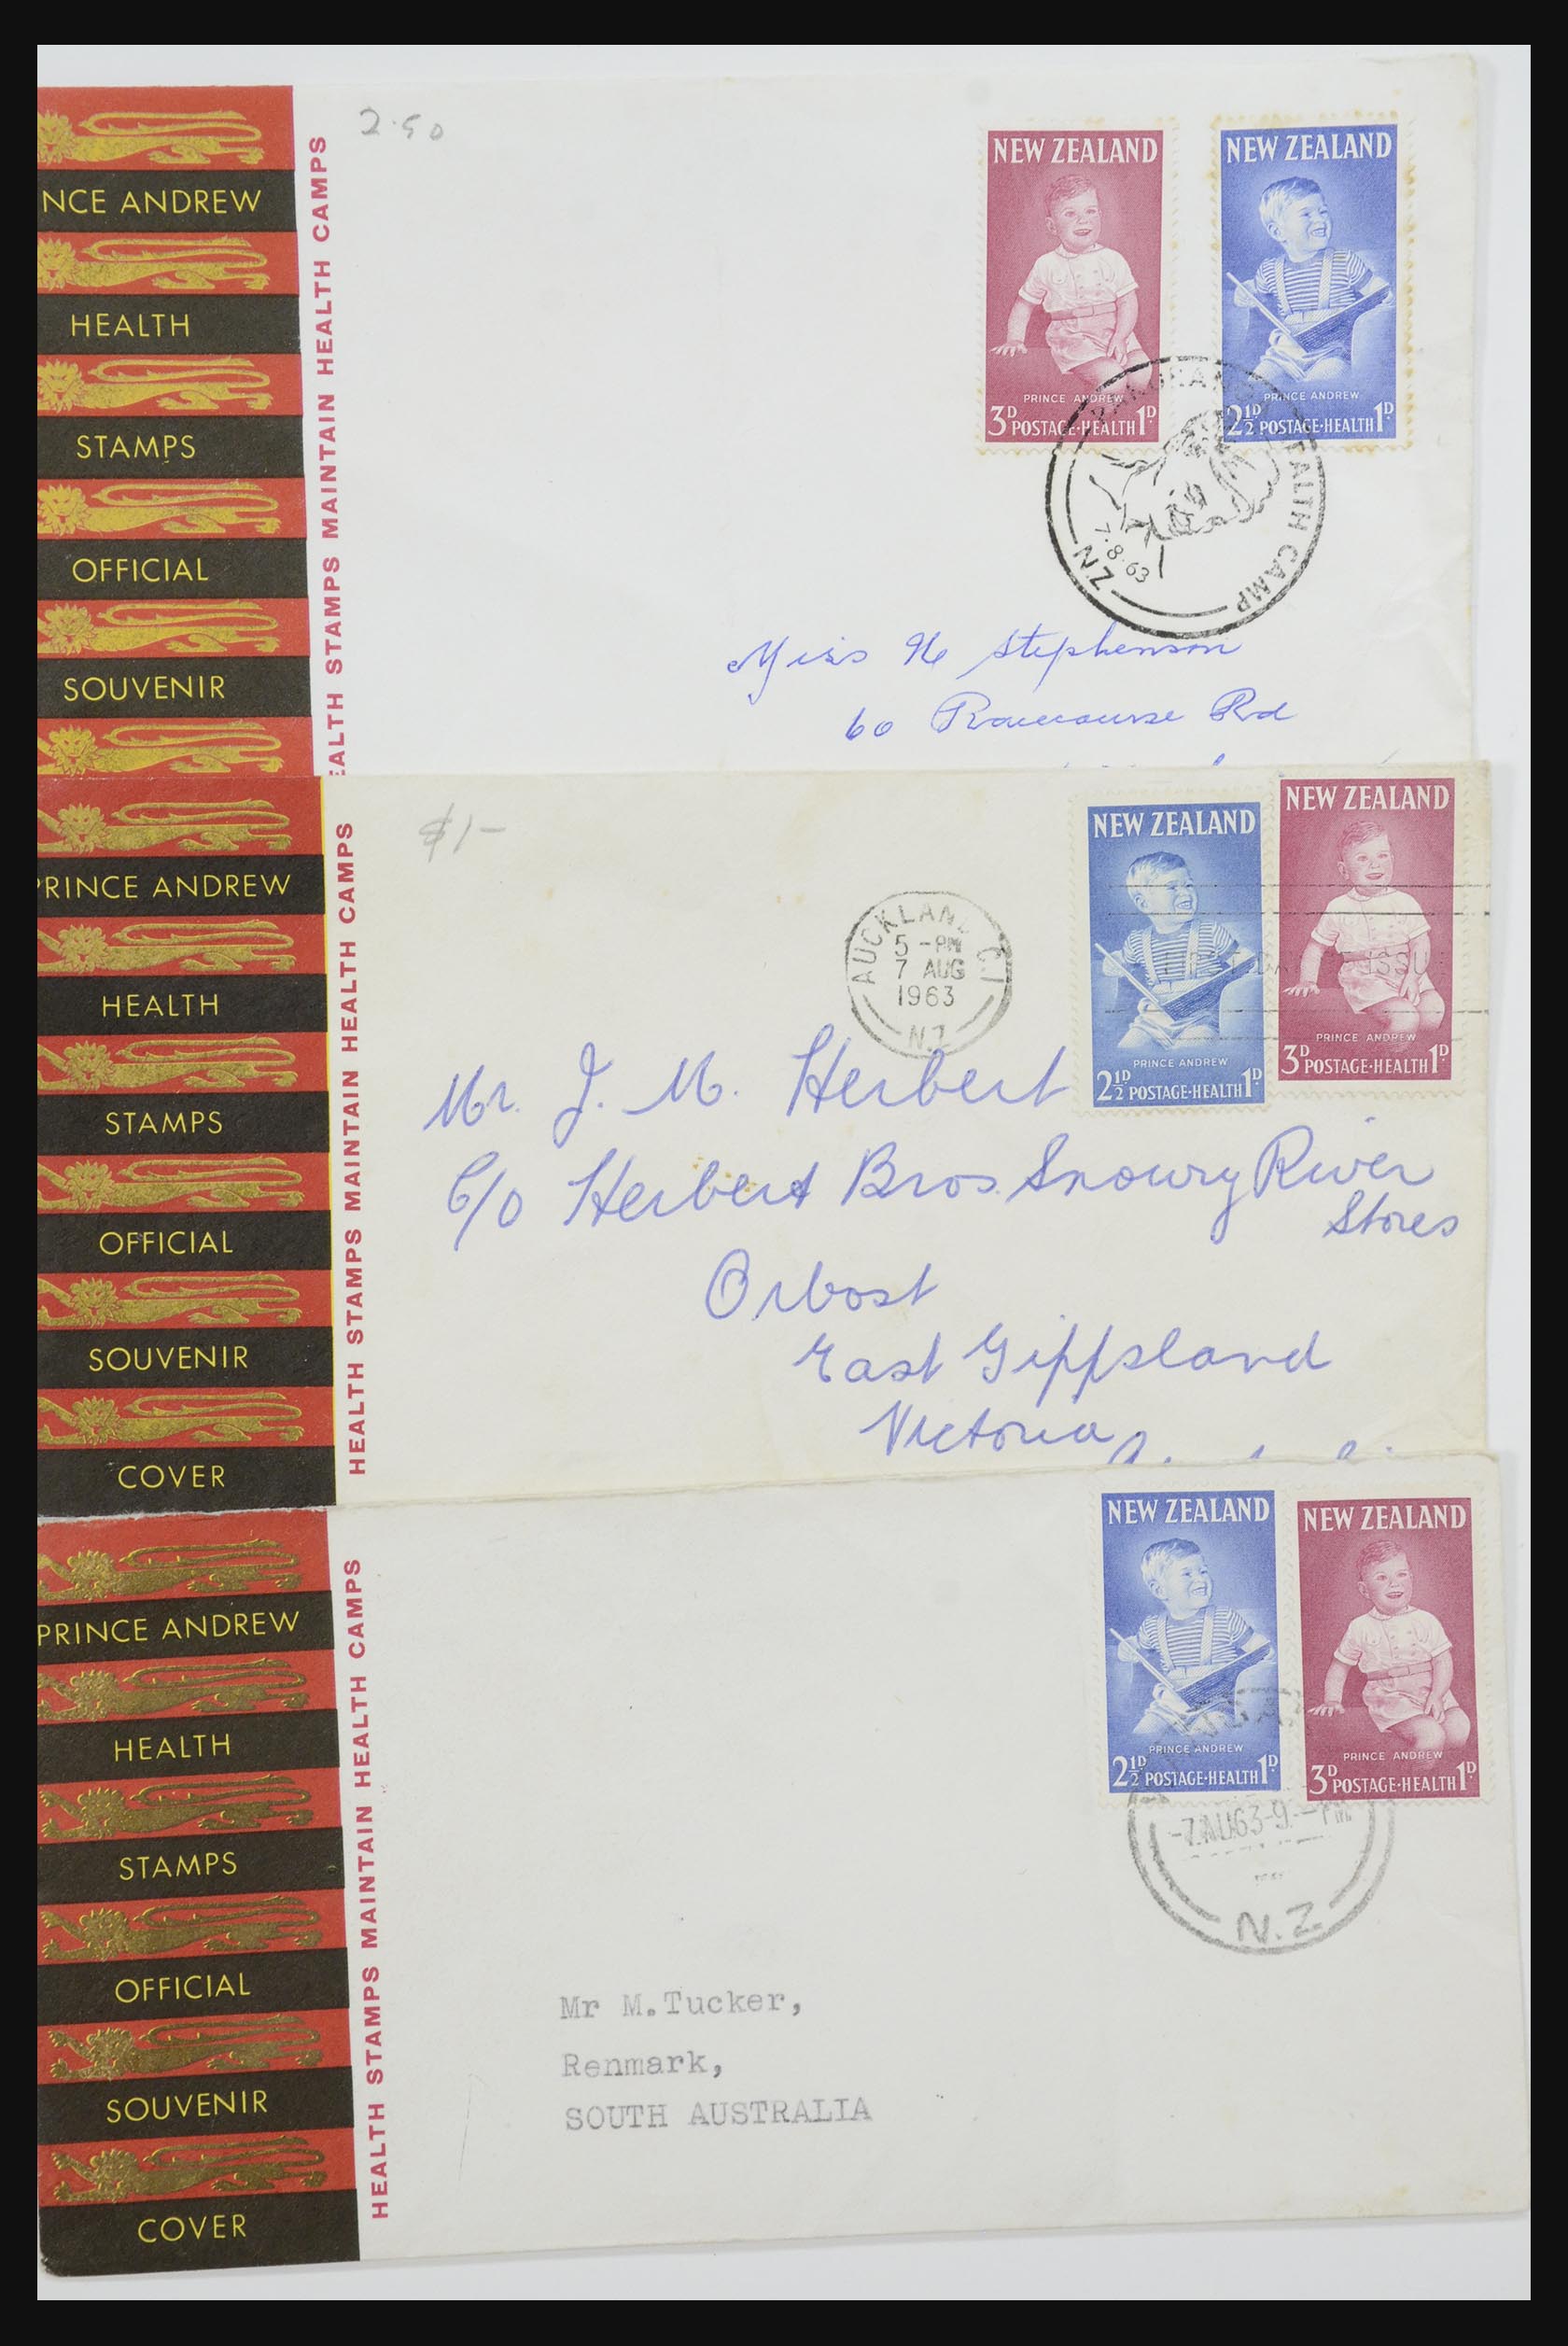 NCE ANDREW
HEALTH
STAMPS
OFFICIAL
SOUVENIR
EALTH STAMPS MAINTAIN HEALTH CAMPS
2.50
NEW ZEALAND
PRINCE ANDREW
3D POSTAGE·HEALTH 1D
NEW ZEALAND
PRINCE ANDREW
2½D POSTAGE·HEALTH 1D
HEALTH CAMP
7.8.63
NZ
Miss N Stephenson
60 Racecourse Rd
PRINCE ANDREW
HEALTH
STAMPS
OFFICIAL
SOUVENIR
COVER
HEALTH STAMPS MAINTAIN HEALTH CAMPS
$1-
AUCKLAND C.1
5 -PM
7 AUG
1963
N.Z
NEW ZEALAND
PRINCE ANDREW
2½D POSTAGE·HEALTH 1D
NEW ZEALAND
PRINCE ANDREW
3D POSTAGE·HEALTH 1D
ISSU
Mr. J. M. Herbert
C/o Herbert Bros. Snowy River
Stores
Orbost
East Gippsland
Victoria
PRINCE ANDREW
HEALTH
STAMPS
OFFICIAL
SOUVENIR
COVER
HEALTH STAMPS MAINTAIN HEALTH CAMPS
NEW ZEALAND
PRINCE ANDREW
2½D POSTAGE·HEALTH 1D
NEW ZEALAND
PRINCE ANDREW
3D POSTAGE·HEALTH 1D
-7AU63-9.-PM
N.Z
Mr M.Tucker,
Renmark,
SOUTH AUSTRALIA